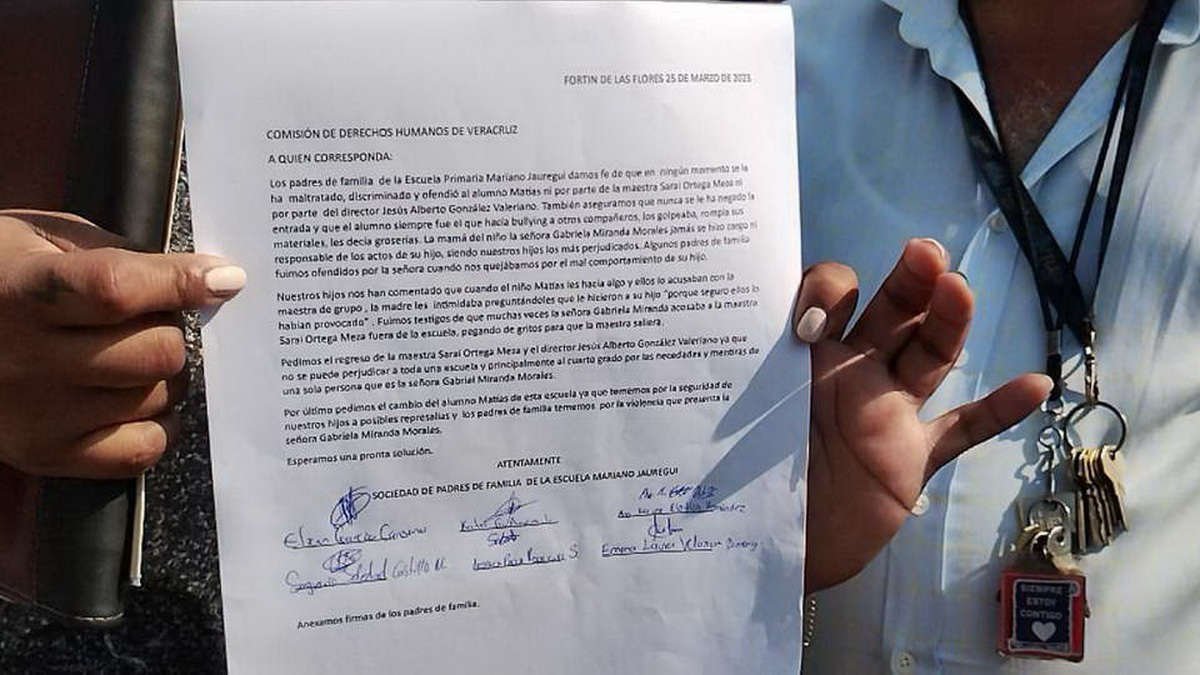 FORTIN DE LAS FLORES 25 DE MARZO DE 2023
COMISIÓN DE DERECHOS HUMANOS DE VERACRUZ
A QUIEN CORRESPONDA:
Los padres de familia de la Escuela Primaria Mariano Jauregui damos fe de que en ningún momento se la
ha maltratado, discriminado y ofendió al alumno Matias ni por parte de la maestra Sarai Ortega Meza ni
por parte del director Jesús Alberto González Valeriano. También aseguramos que nunca se le ha negado la
entrada y que el alumno siempre fue el que hacía bullying a otros compañeros, los golpeaba, rompía sus
materiales, les decía groserías. La mamá del niño la señora Gabriela Miranda Morales jamás se hizo cargo ni
responsable de los actos de su hijo, siendo nuestros hijos los más perjudicados. Algunos padres de familia
fuimos ofendidos por la señora cuando nos quejábamos por el mal comportamiento de su hijo.
Nuestros hijos nos han comentado que cuando el niño Matias les hacía algo y ellos lo acusaban con la
maestra de grupo , la madre les intimidaba preguntándoles que le hicieron a su hijo "porque seguro ellos lo
habían provocado" . Fuimos testigos de que muchas veces la señora Gabriela Miranda acosaba a la maestra
Sarai Ortega Meza fuera de la escuela, pegando de gritos para que la maestra saliera.
Pedimos el regreso de la maestra Sarai Ortega Meza y el director Jesús Alberto González Valeriano ya que
no se puede perjudicar a toda una escuela y principalmente al cuarto grado por las necedades y mentiras de
una sola persona que es la señora Gabriel Miranda Morales.
Por último pedimos el cambio del alumno Matias de esta escuela ya que tememos por la seguridad de
nuestros hijos a posibles represalias y los padres de familia tememos por la violencia que presenta la
señora Gabriela Miranda Morales.
Esperamos una pronta solución.
ATENTAMENTE
SOCIEDAD DE PADRES DE FAMILIA DE LA ESCUELA MARIANO JAUREGUI
Castillo
Anexamos firmas de los padres de familia.
SIEMPRE
ESTOY
CONTIGO